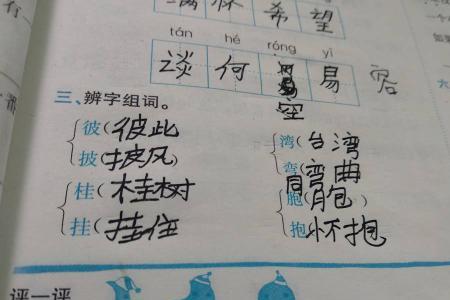 有
满怀希望
一个
如果
tán hé róng yì
谈何 易 容
三、辨字组词。
彼(彼此 湾(台湾
披(披风) 弯(弯曲
桂(桂树 胞(同胞)
挂(挂住 抱(怀抱
评一评